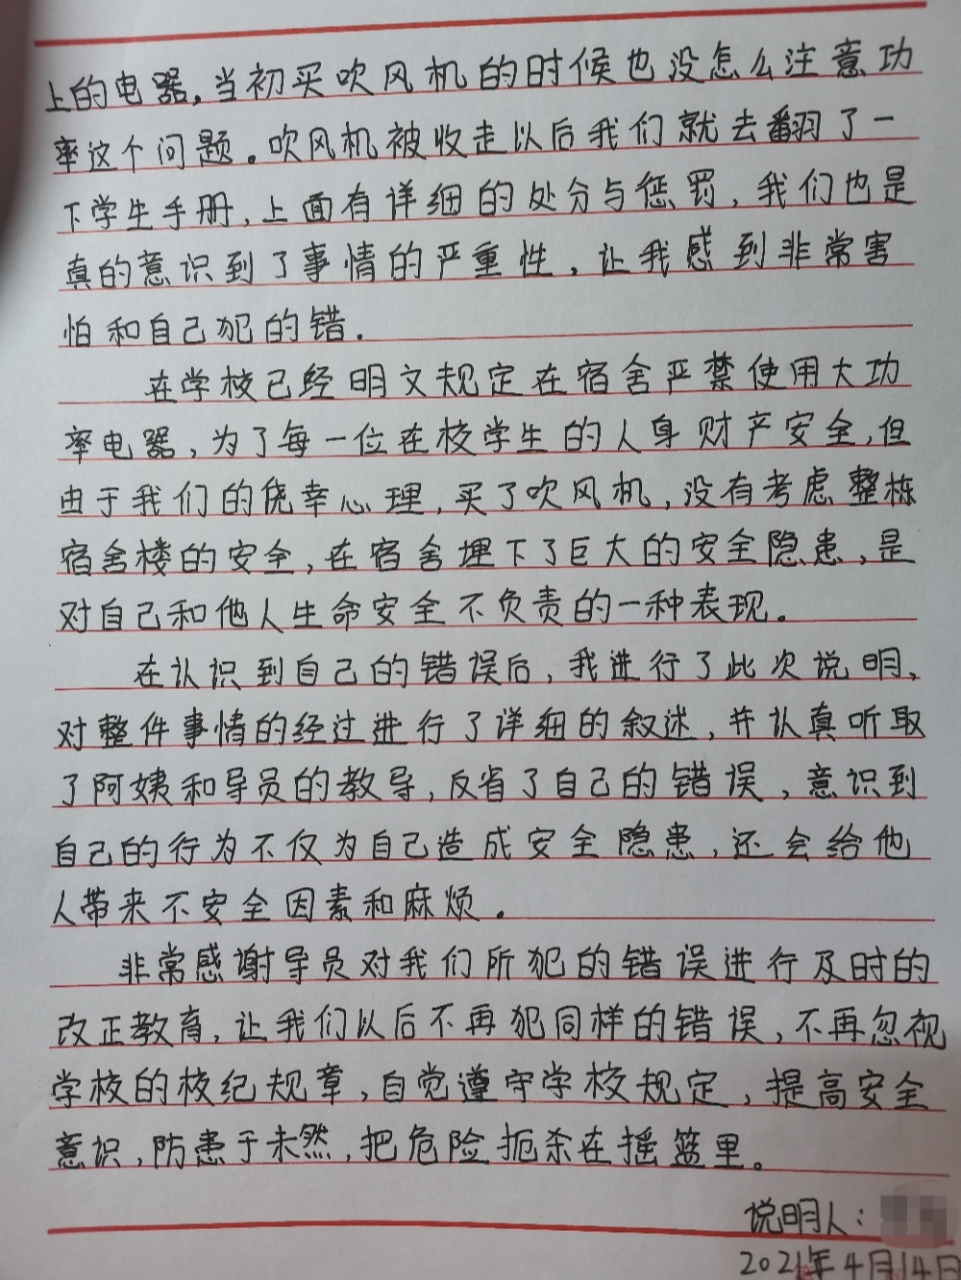 上的电器，当初买吹风机的时候也没怎么注意功
率这个问题。吹风机被收走以后我们就去翻了一
下学生手册，上面有详细的处分与惩罚，我们也是
真的意识到了事情的严重性，让我感到非常害
怕和自己犯的错.
在学校已经明文规定在宿舍严禁使用大功
率电器，为了每一位在校学生的人身财产安全，但
由于我们的侥幸心理，买了吹风机，没有考虑整栋
宿舍楼的安全，在宿舍埋下了巨大的安全隐患，是
对自己和他人生命安全不负责的一种表现。
在认识到自己的错误后，我进行了此次说明，
对整件事情的经过进行了详细的叙述，并认真听取
了阿姨和导员的教导，反省了自己的错误，意识到
自己的行为不仅为自己造成安全隐患，还会给他
人带来不安全因素和麻烦。
非常感谢导员对我们所犯的错误进行及时的
改正教育，让我们以后不再犯同样的错误，不再忽视
学校的校纪规章，自觉遵守学校规定，提高安全
意识，防患于未然，把危险扼杀在摇篮里。
说明人：
2021年4月14日